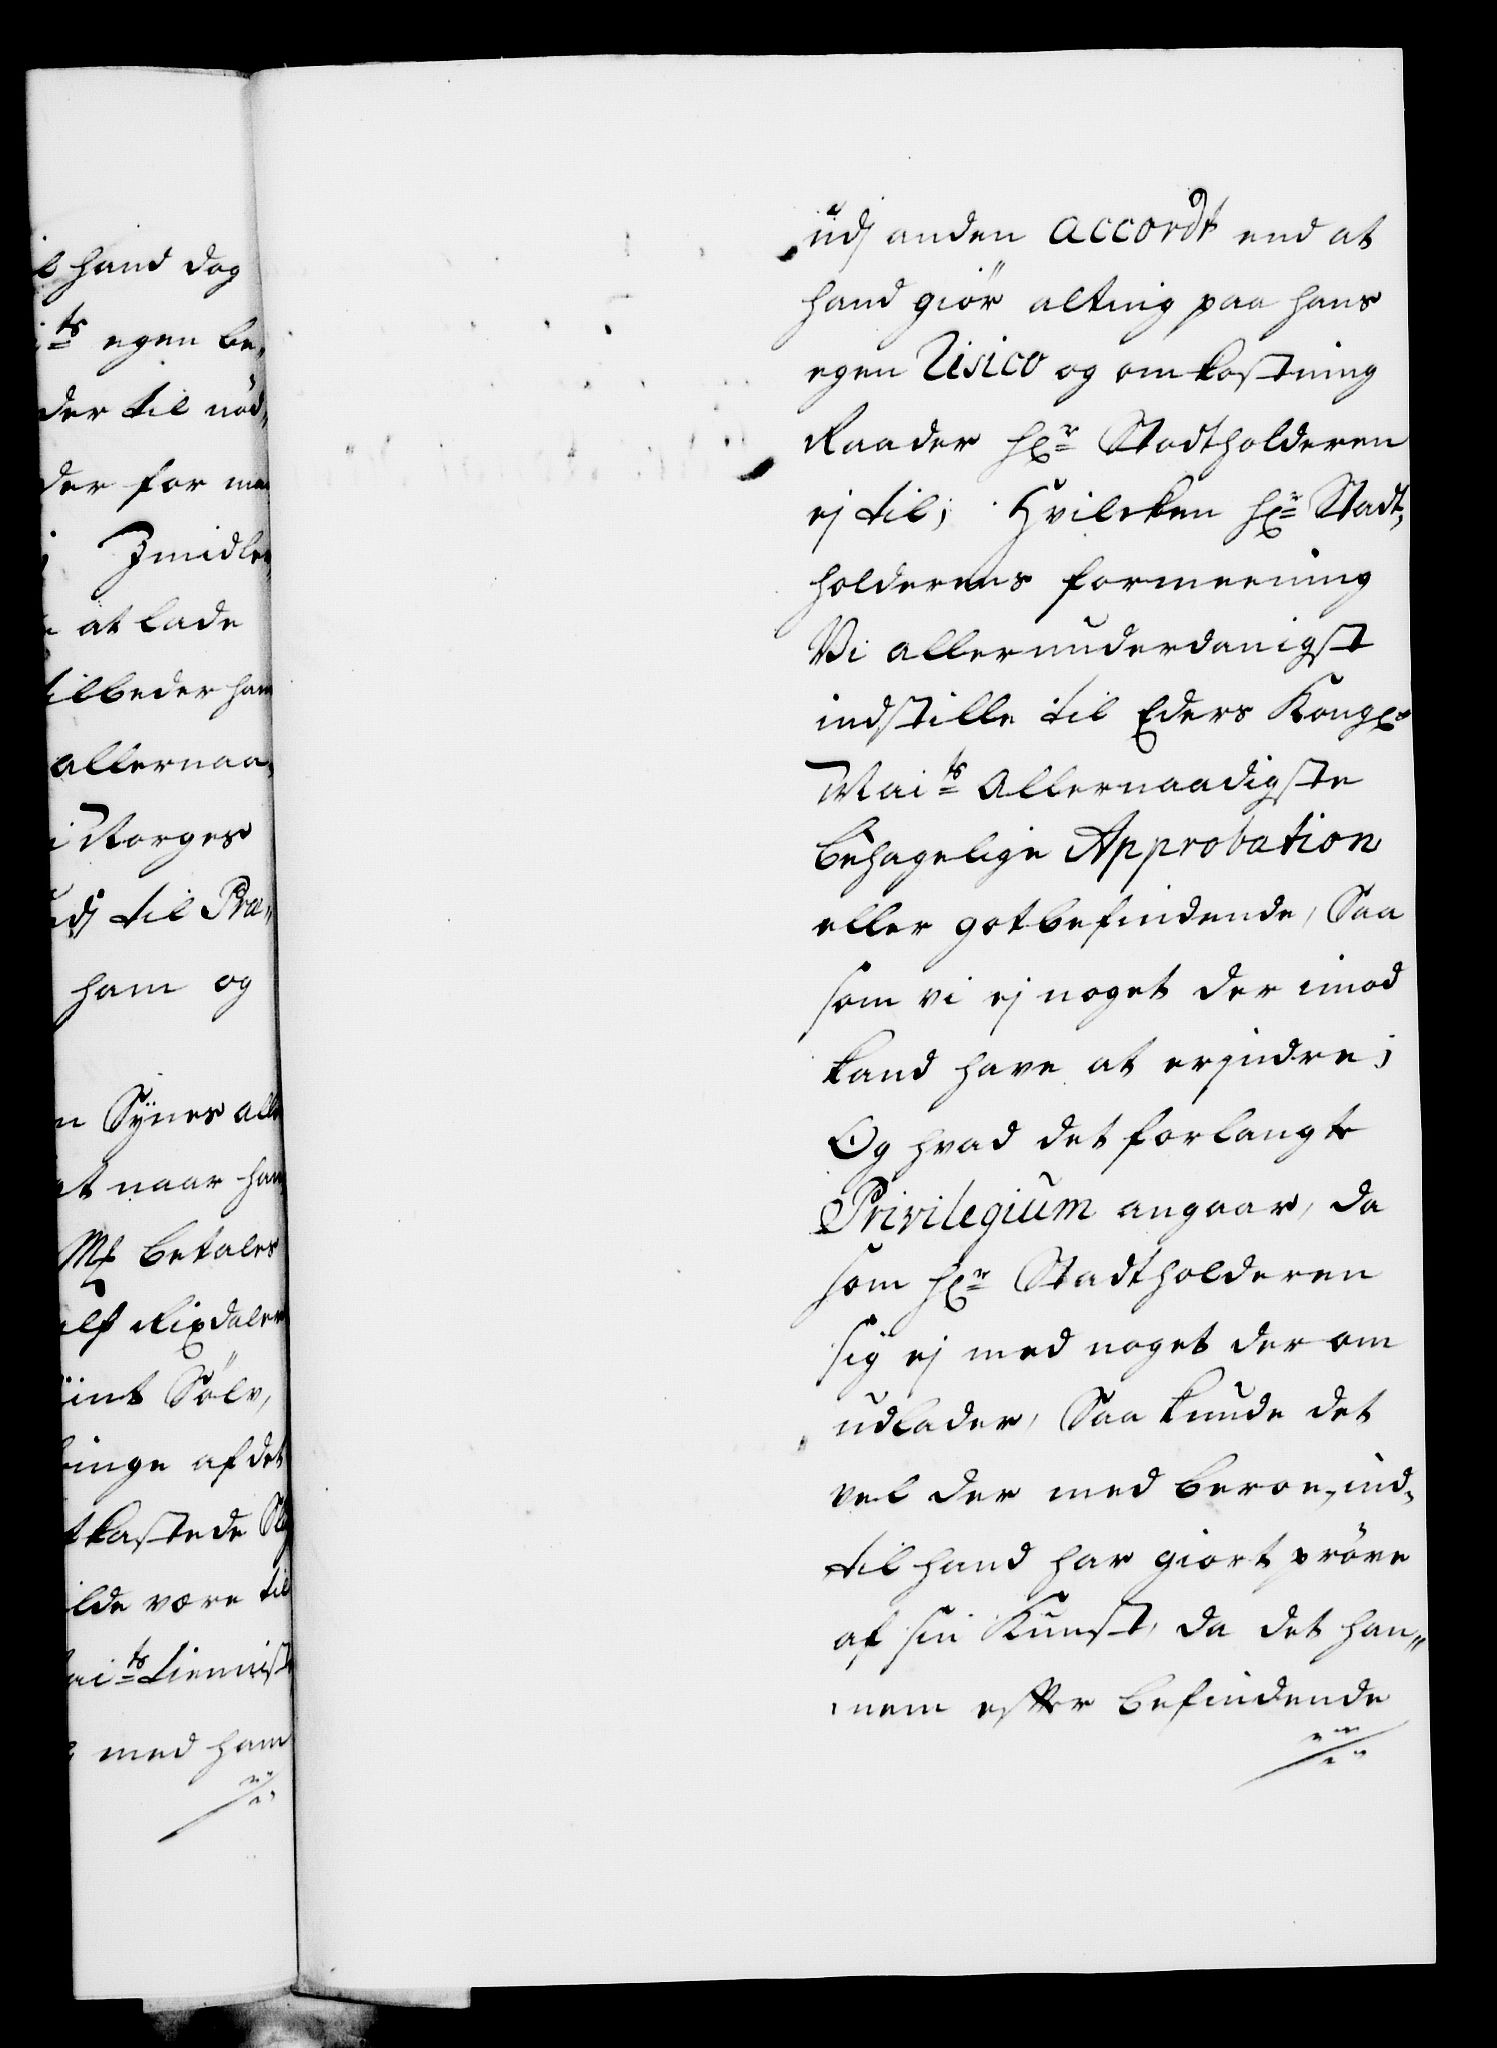 l hand dog
its egen be,
der til nöd,,
der for
Imidler
at lade
ilbeder ham
allernaa,
i Norges
udj til Præ,,
ham og
n Sÿnes alle
at naar han
Mk betales
alf Rixdaler
iint Sölv,
ringe af det
tkastede
ilde være til
aits tienniste
med ham
udj anden accordt end at
hand giör alting paa hans
egen Risico og omkostning
Raader Hr Stadtholderen
ej til; Hvilcken Hr Stadt,
holderens formeening
Vi allerunderdanigst
indstille til Eders Kongl
Maits Allernaadigste
behagelige Approbation
eller gotbefindende, Saa
som vi ej noget der imod
kand have at erindre;
Og hvad det forlangte
Privilegium angaar, da
som Hr Stadtholderen
sig ej med noget der om
udlader, Saa kunde det
vel der med beroe, ind,
til hand har giort pröve
af sin Kunst, da det han,,
nem effter befindende